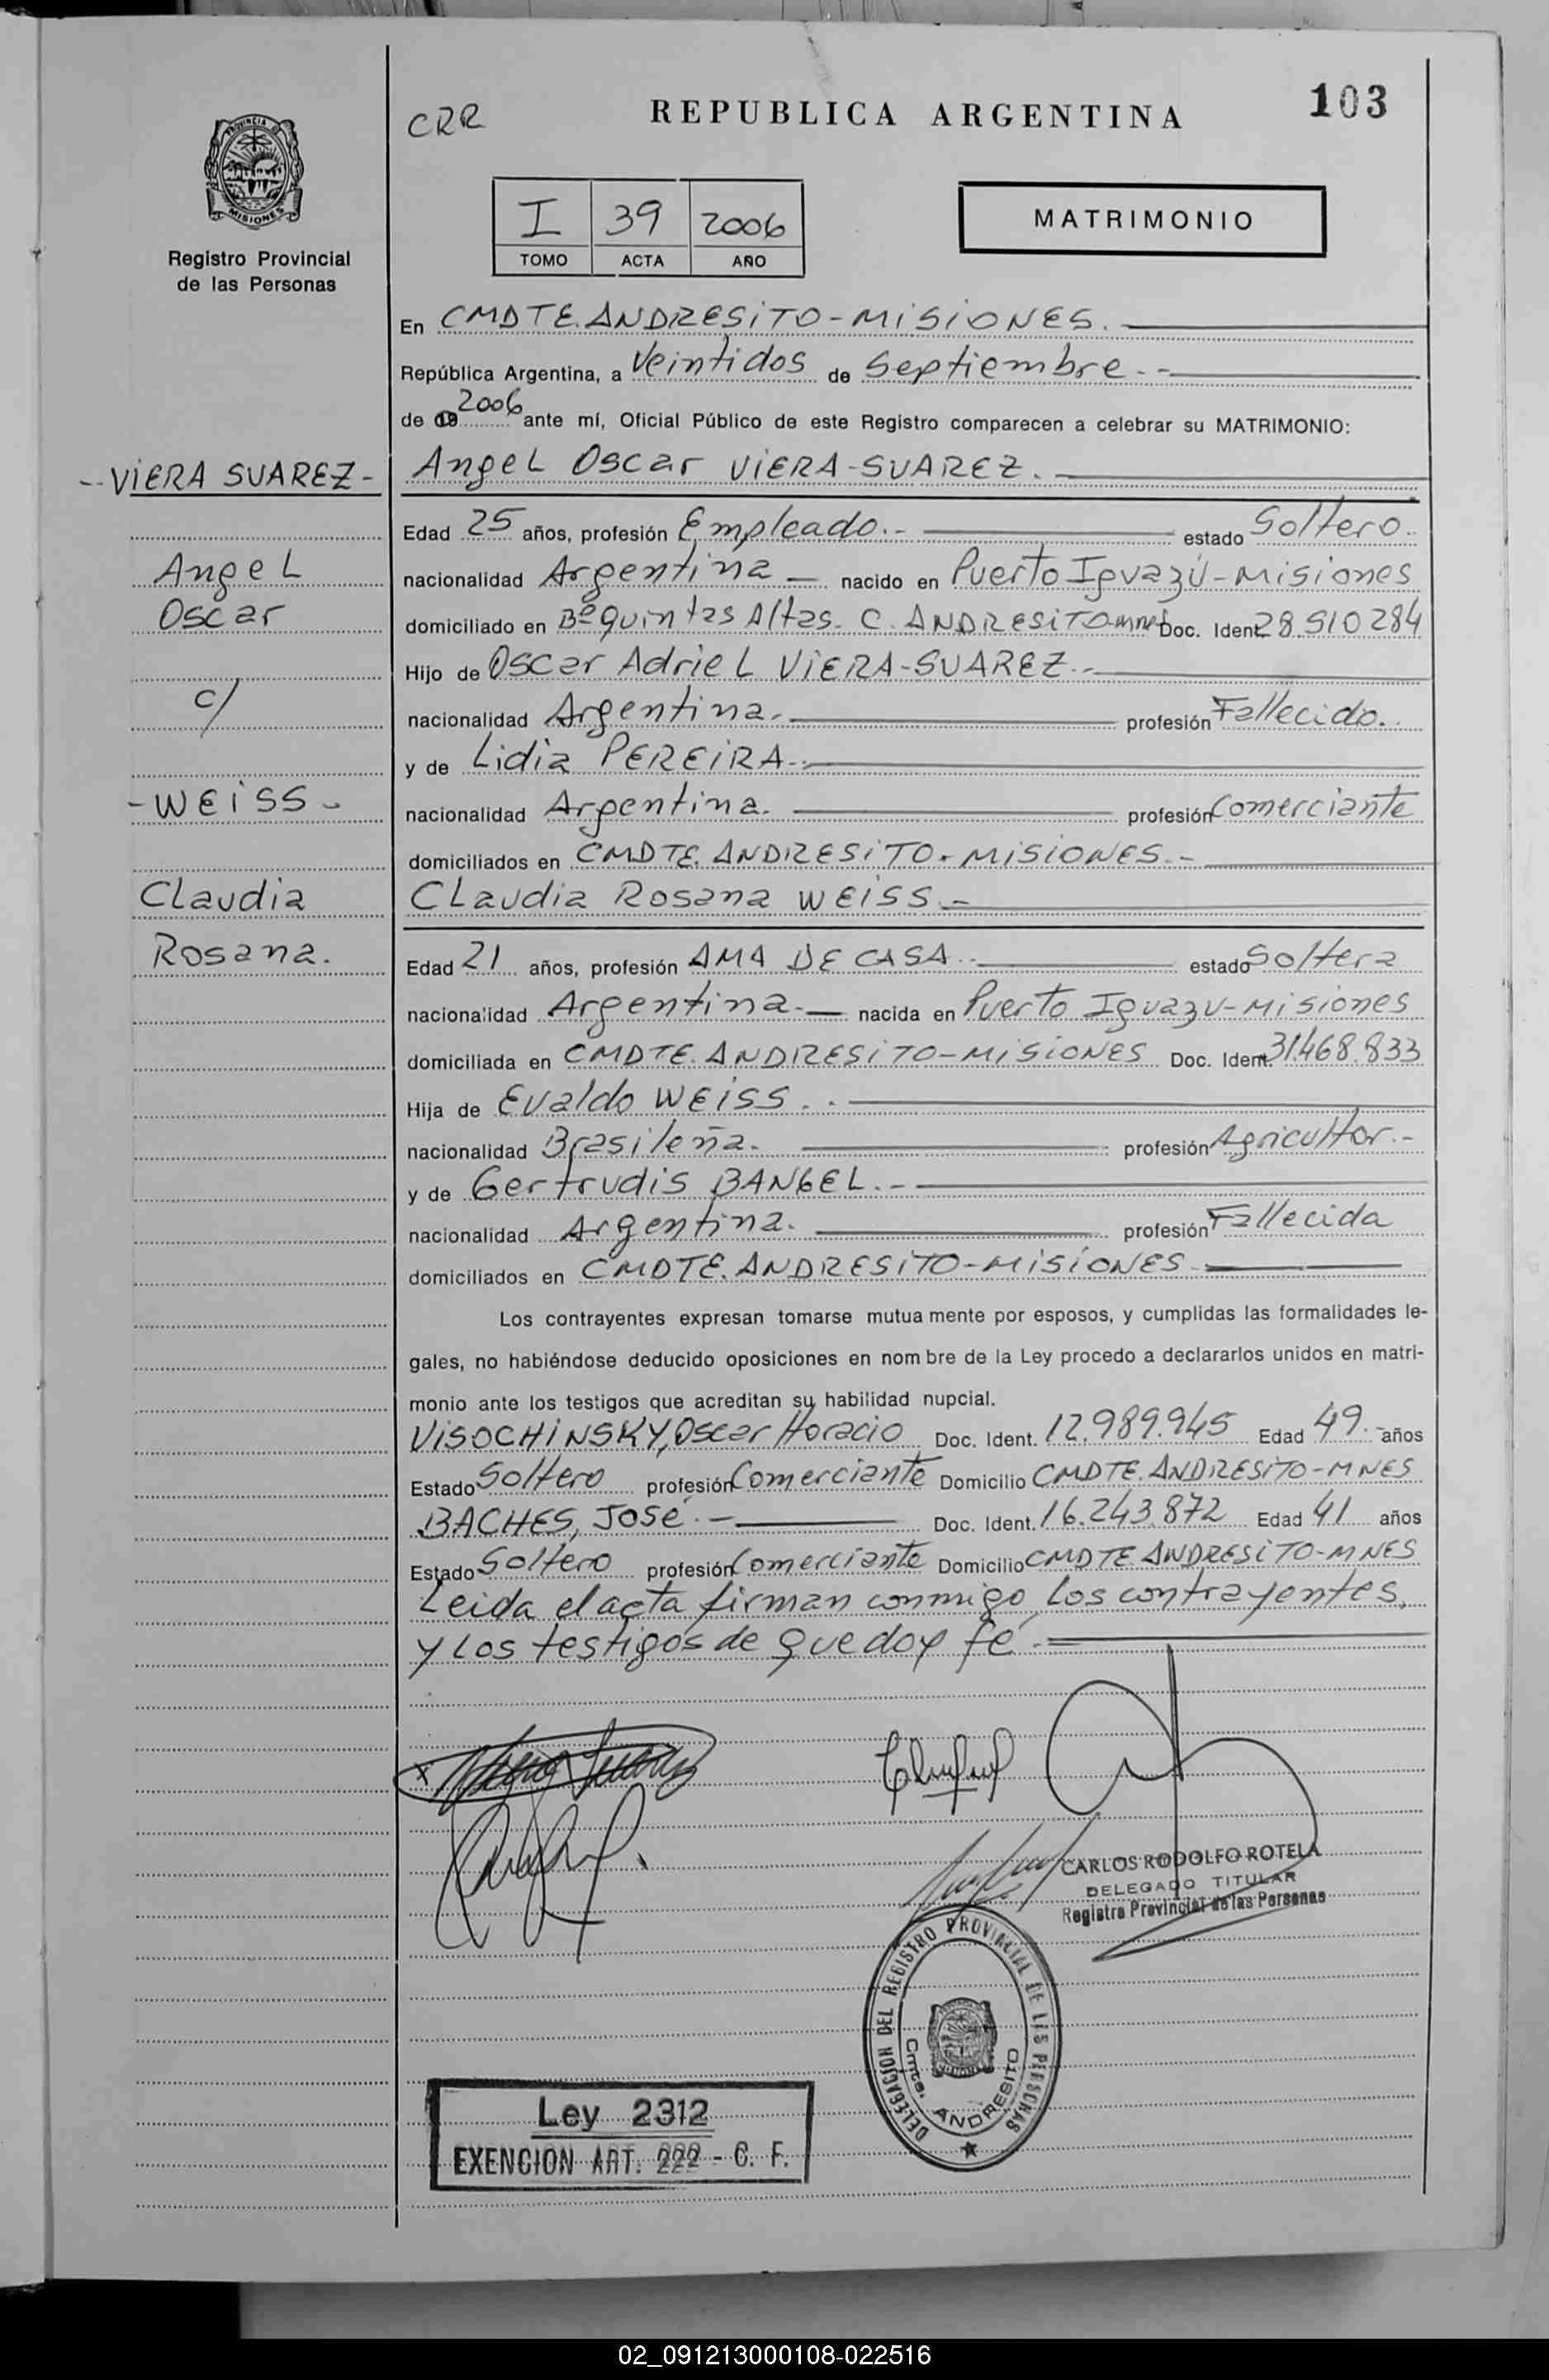 CRR
REPUBLICA ARGENTINA
103
PROVINCIA D
MISIONES
Registro Provincial
de las Personas
I 39 2006
TOMO ACTA AÑO
MATRIMONIO
En CMDTE. ANDRESITO - MISIONES.
República Argentina, a Veintidos de Septiembre.-
de 19 2006 ante mí, Oficial Público de este Registro comparecen a celebrar su MATRIMONIO:
-- VIERA SUAREZ -
Angel Oscar VIERA-SUAREZ.
Edad 25 años, profesión Empleado.- estado Soltero.
Angel
nacionalidad Argentina nacido en Puerto Iguazú - Misiones
Oscar
domiciliado en Bº Quintas Altas. C. ANDRESITO mnes Doc. Ident. 28.510284
Hijo de Oscar Adriel VIERA-SUAREZ.-
c/
nacionalidad Argentina.- profesión Fallecido.
y de Lidia PEREIRA.-
- WEISS -
nacionalidad Argentina. profesión Comerciante
domiciliados en CMDTE. ANDRESITO - MISIONES.-
Claudia
Claudia Rosana WEISS.-
Rosana.
Edad 21 años, profesión AMA DE CASA.- estado Soltera
nacionalidad Argentina.- nacida en Puerto Iguazu - Misiones
domiciliada en CMDTE. ANDRESITO - MISIONES Doc. Ident. 31.468.833
Hija de Evaldo WEISS..
nacionalidad Brasileña. profesión Agricultor.-
y de Gertrudis BANGEL.-
nacionalidad Argentina. profesión Fallecida
domiciliados en CMDTE. ANDRESITO - MISIONES
Los contrayentes expresan tomarse mutua mente por esposos, y cumplidas las formalidades le-
gales, no habiéndose deducido oposiciones en nom bre de la Ley procedo a declararlos unidos en matri-
monio ante los testigos que acreditan su habilidad nupcial.
VISOCHINSKY, Oscar Horacio Doc. Ident. 12.989.945 Edad 49.- años
Estado Soltero profesión Comerciante Domicilio CMDTE. ANDRESITO - MNES
BACHES, José.- Doc. Ident. 16.243.872 Edad 41 años
Estado Soltero profesión Comerciante Domicilio CMDTE. ANDRESITO - MNES
Leida el acta firman conmigo, los contrayentes,
y los testigos de que doy fe.-
CARLOS RODOLFO ROTELA
DELEGADO TITULAR
Registro Provincial de las Personas
DELEGACION DEL REGISTRO PROVINCIAL DE LAS PERSONAS
Cmte. ANDRESITO
Ley 2312
EXENCION ART. 222 - C. F.
02_091213000108-022516